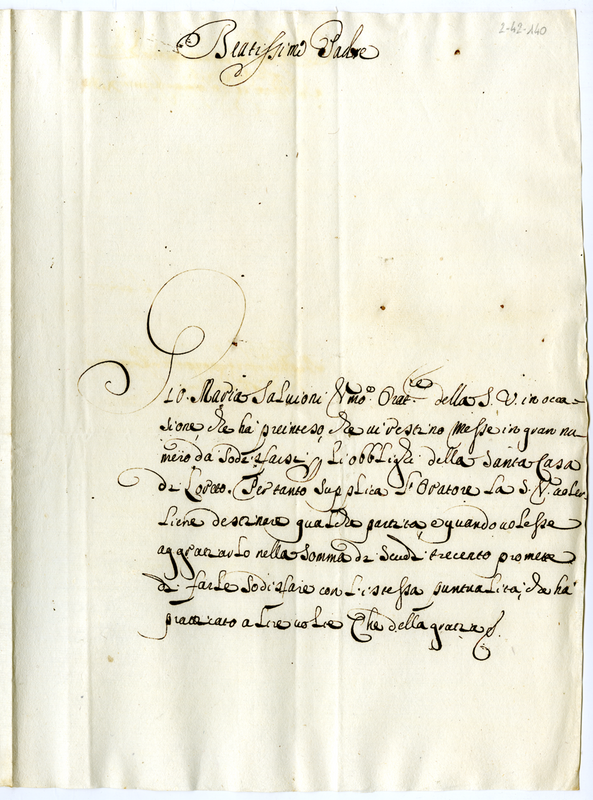 2-42-140
Beatissimo Padre
Gio. Maria Salvioni Umo. Orat.re della S. V. in occa-
sione, che ha preinteso, che vi restino Messe in gran nu-
mero da sodisfarsi p li obblighi della Santa Casa
di Loreto. Pertanto supplica l'Oratore la S. V. voler-
liene destinare qualche partita, e quando volesse
aggratiarlo nella somma di scudi trecento promette
di farle sodisfare con l'istessa puntualità, che ha
pratticato altre volte Che della gratia